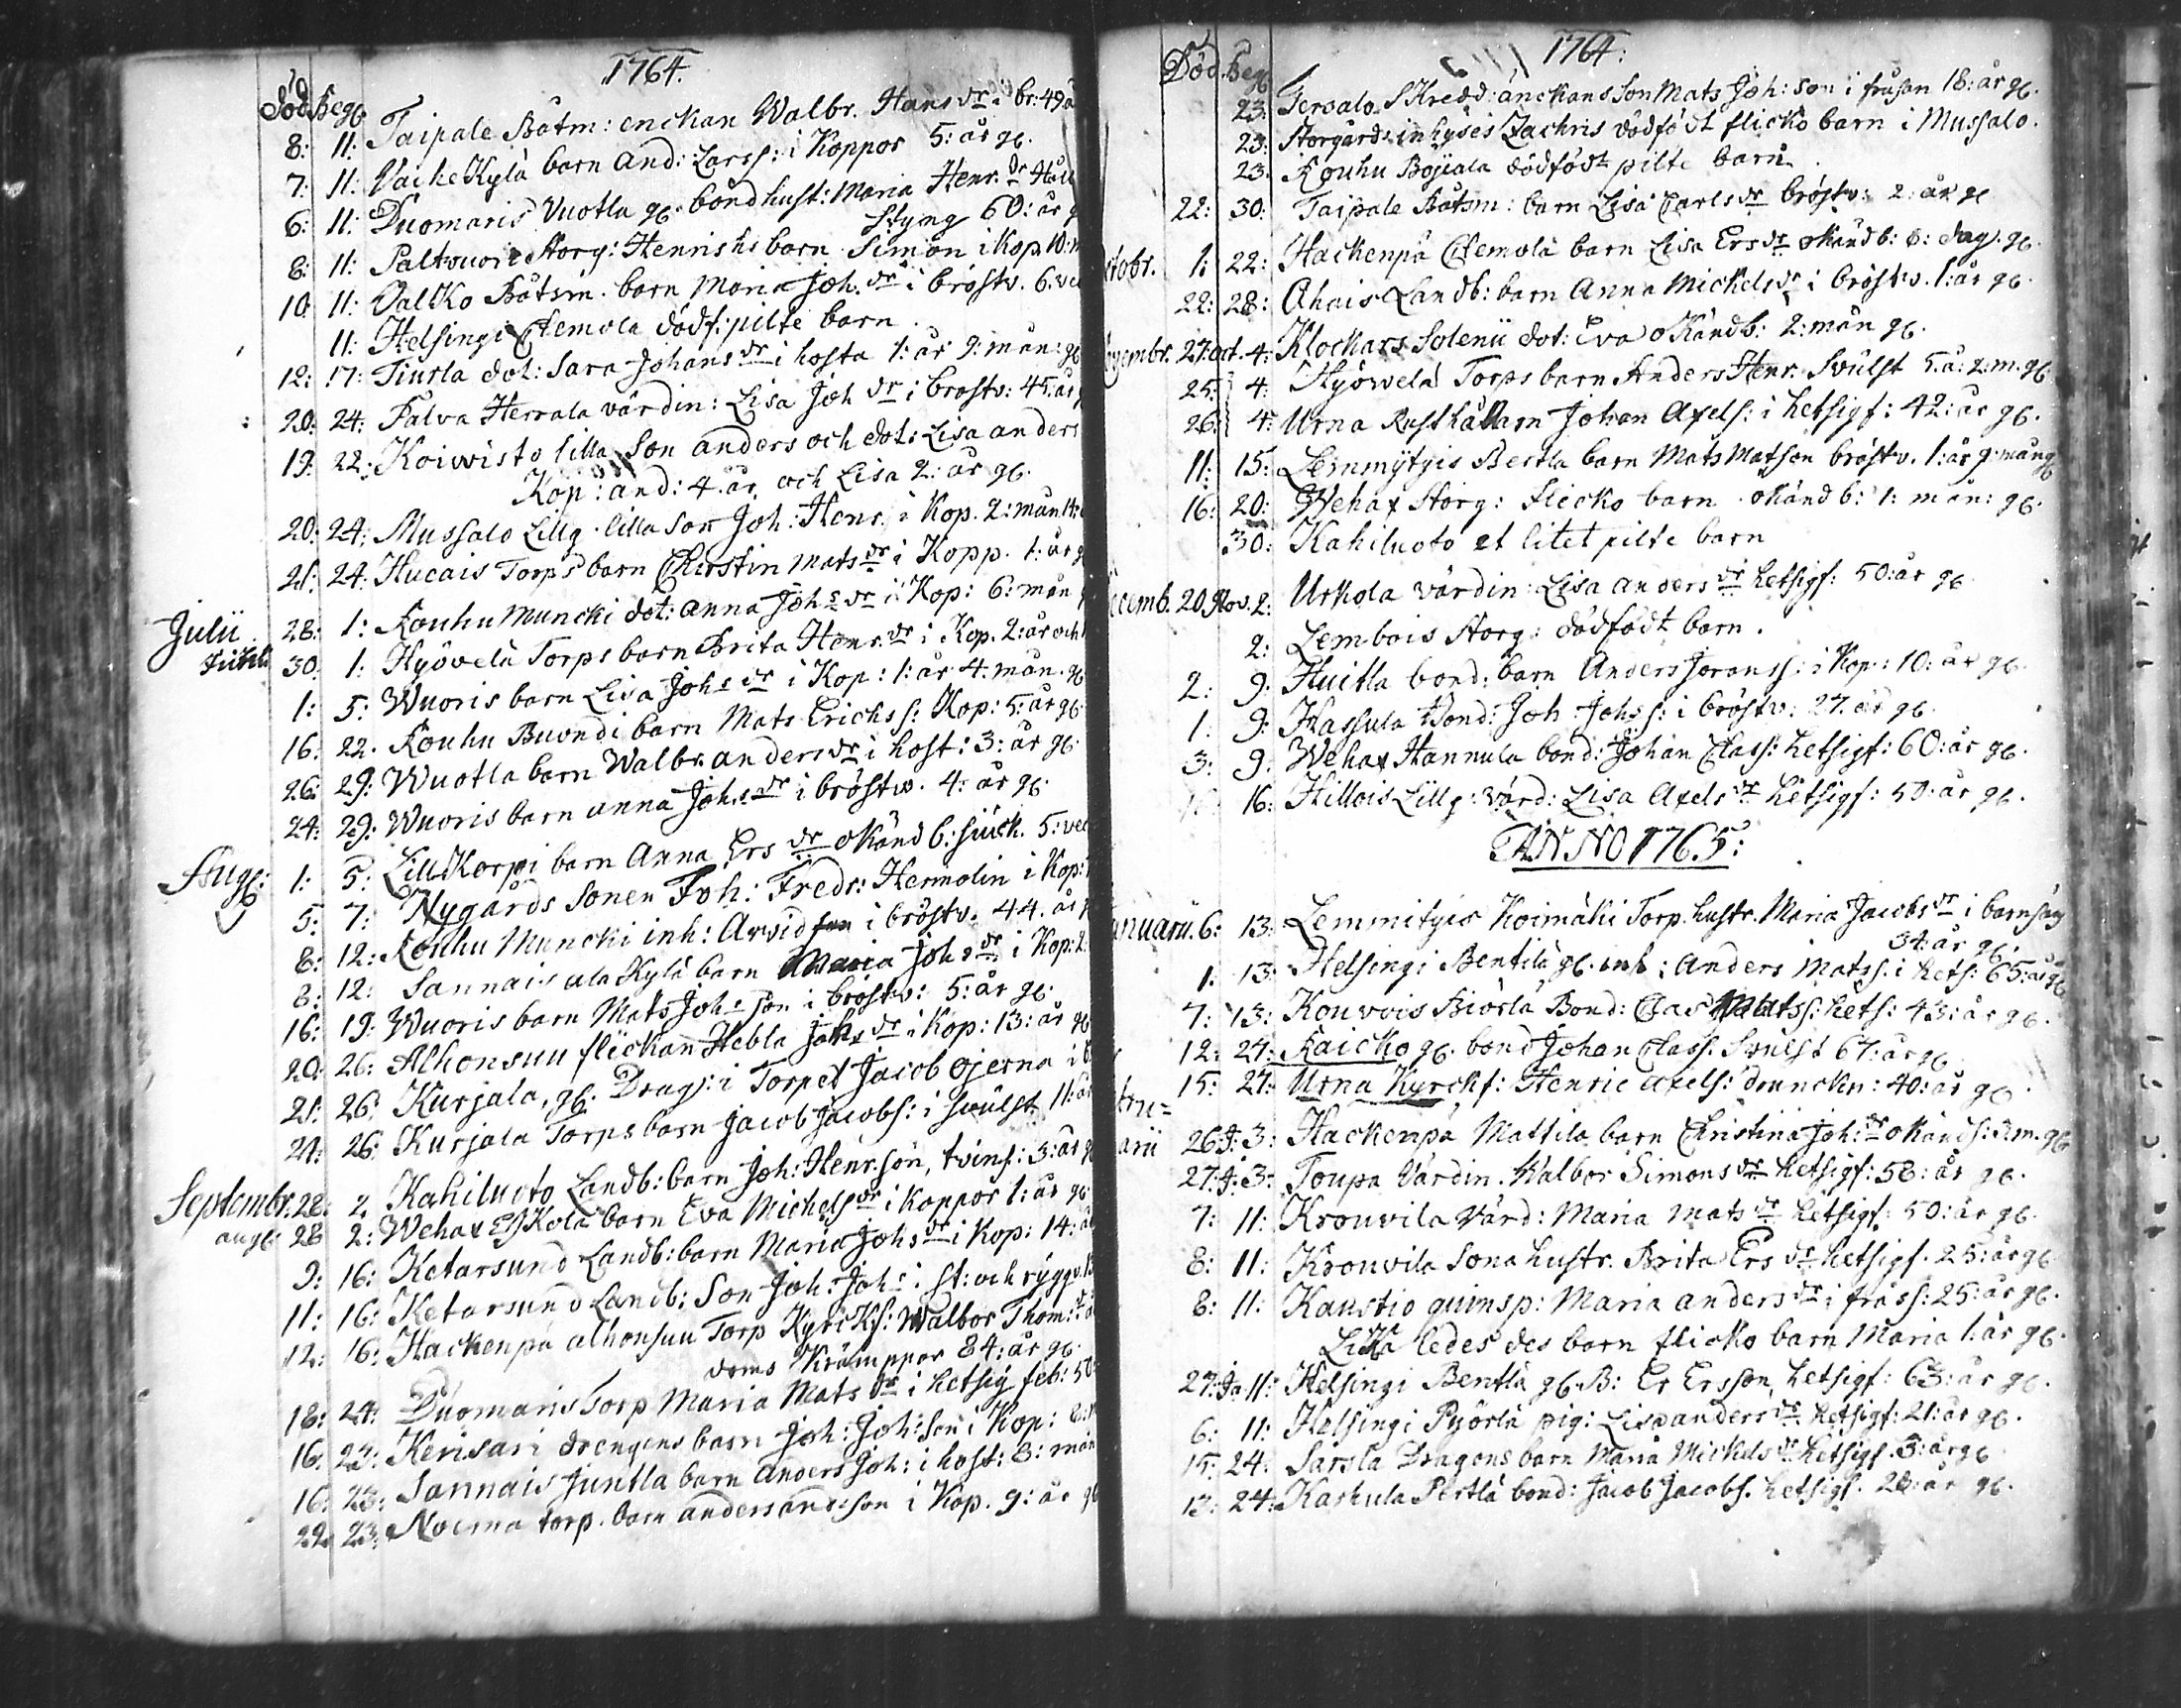 1764.
Död. Begr.
8: 11: Taipale Båtm: enckan Walbr. Hans dr i br: 49 å
7: 11: Vacke Kylä barn And: Larss: i Koppor 5: år gl.
6: 11: Duomaris Vuotla gl. bond hust: Maria Henr. dr Håll
Styng 60: år g
8: 11: Saltvuori Storg: Henrichs barn Simon i Kop. 10: m
10: 11: Valko Båtsm. barn Maria Joh. dr i bröstv. 6. vec
11: Helsingi Clemola dödf: pilte barn
12: 17: Tiurla dot: Sara Johans dr i hosta 1: år 9: mån: gl
20: 24: Falva Herrala värdin: Lisa Joh dr i bröstv: 45: år
19: 22: Koivisto lilla Son anders och dot: Lisa anders
Kop: and: 4. år och Lisa 2: år gl.
20: 24: Mussalo Lillg. lilla son Joh: Henr. i Kop. 2: mån
21: 24: Hucais Torps barn Christin Mats dr i Kopp. 1: år g
Julii 28: 1: Rouhu Muncki dot: anna Johs dr i Kop: 6: mån
30: 1: Hyövelä Torps barn Brita Henr. dr i Kop. 2: år och
1: 5: Wuoris barn Lisa Johs dr i Kop: 1: år 4: mån. gl
16: 22. Rouhu Buondi barn Mats Erichs s: Kop: 5: år gl.
26: 29: Wuotla barn Walbr. anders dr i host: 3: år gl.
24: 29: Wuoris barn anna Johs dr i bröstw. 4: år gl.
Aug: 1: 5: Lill Korpi barn Anna Ers dr okänd b: siuck. 5: vec
5: 7: Nygårds sonen Joh: Fredr: Hermolin i Kop:
8: 12: Rouhu Muncki inh: Arvid son i bröstv. 44. år
8: 12: Sannais ala Kylä barn Maria Johs dr i Kop: 2:
16: 19: Wuoris barn Mats Johs son i bröstv: 5: år gl.
20: 26: Alhonsuu flickan Hebla Johs dr i Kop: 13: år gl
21: 26: Kurjala, gl. Drag: i Torpet Jacob Ojerna i
21: 26: Kurjala Torps barn Jacob Jacobs: i Svulst 11: år
Septembr. 28: 2. Kahiluoto Landb: barn Joh: Henr. son, tvins: 3: år g
aug: 28 2: Wehax Eskola barn Eva Michels dr i Koppor 1: år gl.
9: 16: Ketarsund Landb: barn Maria Johs dr i Kop: 14: år
11: 16: Ketarsund Landb: Son Joh: Joh: i st: och rygg v.
12: 16: Hackenpä alhonsuu Torp Kyrcks: Walbor Thom:
doms Krämppor 84: år gl.
18: 24: Duomaris Torp Maria Mats dr i hetsig feb: 50
16: 23: Kerisari drengens barn Joh: Joh: son i Kop: 8:
16: 23: Sannais Juntla barn Anders Joh: i host: 8: mån
22: 23: Noerma torp. barn anders anders son i Kop. 9: år gl
1764:
Död. Begr
23: Jersalo Skredd: änckans Son Mats Joh: son i frusan 18: år gl.
23: Storgårds inhyses Zachris dödfödt flicko barn i Mussalo.
23: Rouhu Bojiala dödfödt pilte barn.
22: 30: Taipale Båtsm: barn Lisa Carls dr bröstv: 2: år gl
ctobr. 1: 22: Hackenpä Clemola barn Lisa Ers dr okänd b: 8: dag. gl.
22: 28: Ahais Landb: barn Anna Michels dr i bröstv. 1: år gl.
vembr. 27. oct. 4: Klockars Solenii dot: Eva okänd b: 2: mån gl.
25: 4: Hyövelä Torps barn Anders Henr. Svulst 5. å: 2: m. gl
26: 4: Urna Rusthållarn Johan Axels: i hetsigf: 42: år gl.
11: 15: Lemmytyis Bertla barn Mats Matson bröstv. 1: år 9: mån gl
16: 20: Wehax Storg: flicko barn okänd b: 1: mån: gl.
30: Kahiluoto et litet pilte barn
cemb. 20. Nov. 2: Urkola värdin: Lisa anders dr hetsigf: 50: år gl.
2: Lembois Storg: dödfödt barn.
2: 9: Huitla bond: barn Anders Jorans s: i Kop: 10: år gl.
1: 9: Hassula Bond: Joh Johs s: i bröstv: 27. år gl.
3: 9: Wehax Hannula bond: Johan Class: hetsigf: 60: år gl.
16: Hillois Lillg: Värd: Lisa Axels dr hetsigf: 50: år gl.
ANNO 1765:
anuarii. 6: 13: Lemmityis Koimäki Torp. hustr. Maria Jacobs dr i barnsäng
34: år gl.
1: 13: Helsingi Bentilä gl. inh: Anders Matss: i hets: 65: år gl
7: 13: Kouvois Biörlä Bond: Clas Matss: hets: 43: år gl.
12: 27: Raicko gl. bond Johan Class. Svulst 67: år gl
15: 27: Urna Kyrckf: Henric axels: drunckn: 40: år gl.
bru=
arii 26. J: 3: Hackenpä Mattila barn Christina Joh: dr okänds: 3: m. gl
27: J: 3: Toupa Värdin. Walbor Simons dr hetsigf: 58: år gl.
7: 11: Krouvila Värd: Maria Mats dr hetsigf: 50: år gl.
8: 11: Krouvila Sona hustr. Brita Ers dr hetsigf. 25: år gl
8: 11: Kaustio quinsp: Maria anders dr i fråss: 25: år gl.
Lika ledes des barn flicko barn Maria 1: år gl.
27: Ja. 11: Helsingi Bentlä gl. B: Er Ersson, hetsigf: 63: år gl.
6: 11: Helsingi Pyörlä pig: Lisa anders dr hetsigf: 21: år gl.
15: 24: Särsla Dragons barn Maria Mickels dr hetsigf. 3: år gl
13: 24: Kaskula Pertlä bond: Jacob Jacobs. hetsigf. 28: år gl.